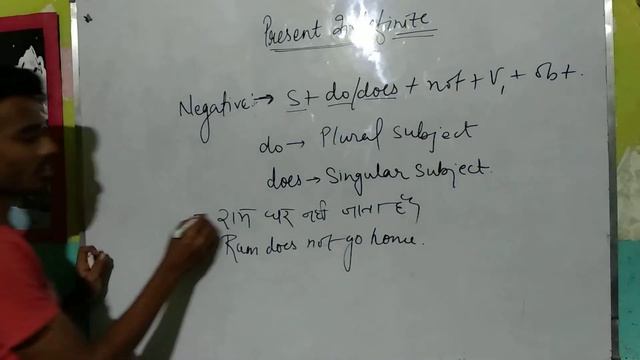 Present Indefinite
Negative:→ S+ do/does + not + V₁ + ob+.
do → Plural subject
does → Singular Subject.
राम घर नहीं जाता है
Ram does not go home.